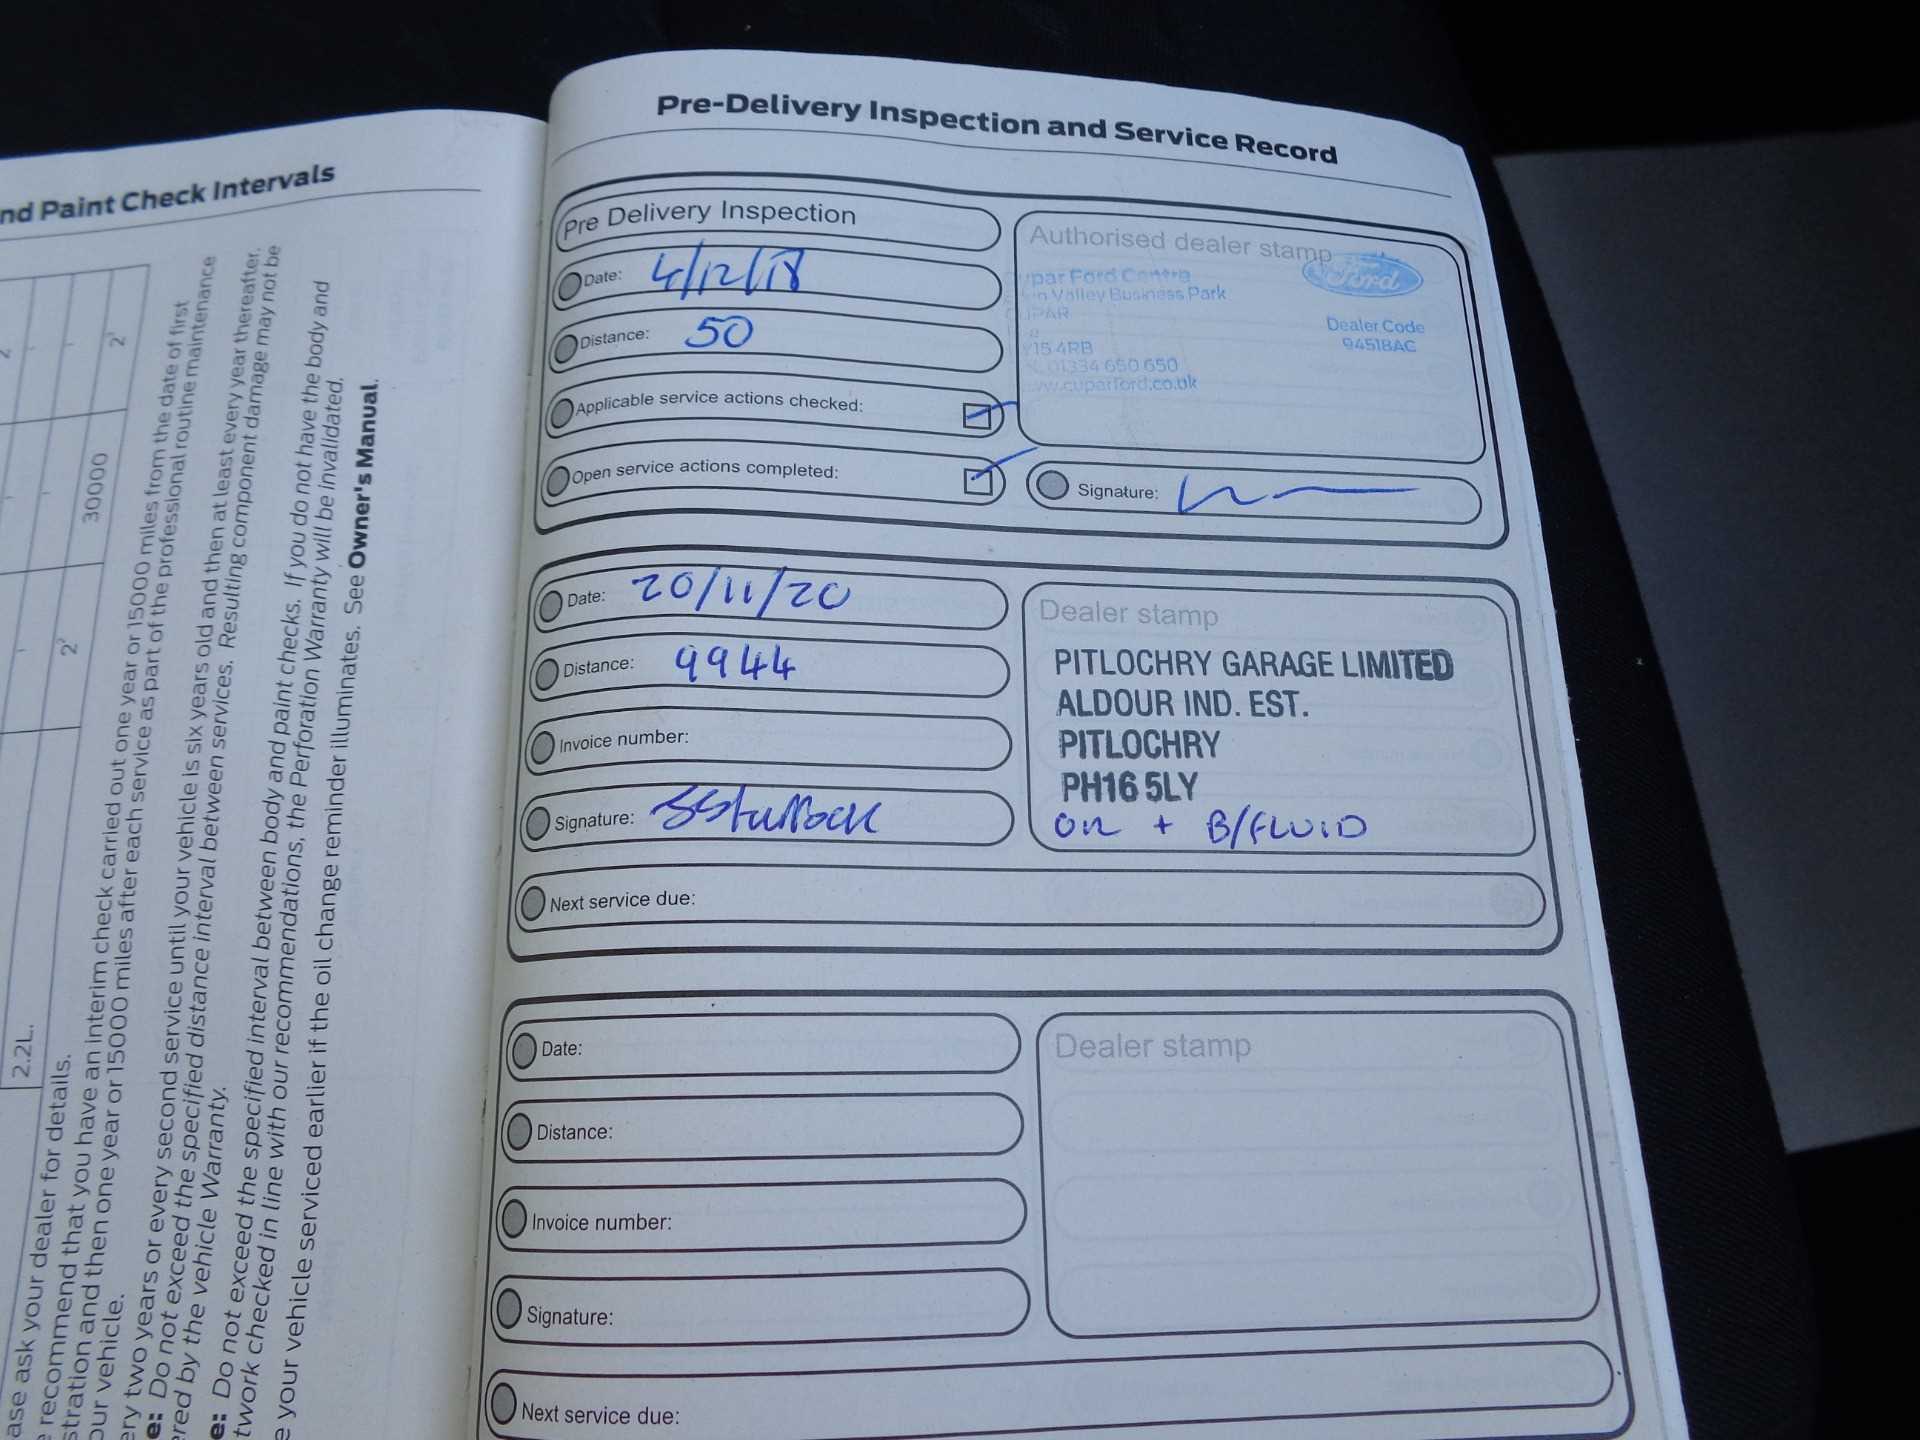 nd Paint Check Intervals
2
2²
30000
2²
2.2L.
ase ask your dealer for details.
recommend that you have an interim check carried out one year or 15000 miles from the date of first
stration and then one year or 15000 miles after each service as part of the professional routine maintenance
our vehicle.
ery two years or every second service until your vehicle is six years old and then at least every year thereafter.
e: Do not exceed the specified distance interval between services. Resulting component damage may not be
ered by the vehicle Warranty.
e: Do not exceed the specified interval between body and paint checks. If you do not have the body and
twork checked in line with our recommendations, the Perforation Warranty will be invalidated.
e your vehicle serviced earlier if the oil change reminder illuminates. See Owner's Manual.
Pre-Delivery Inspection and Service Record
Pre Delivery Inspection
Date: 4/12/18
Distance: 50
Applicable service actions checked:
Open service actions completed:
Authorised dealer stamp
Ford
upar Ford Centre
n Valley Business Park
UPAR
15 4RB
01334 650 650
w.cuparford.co.uk
Dealer Code
94518AC
Signature:
Date: 20/11/20
Distance: 9944
Invoice number:
Signature:
Next service due:
Dealer stamp
PITLOCHRY GARAGE LIMITED
ALDOUR IND. EST.
PITLOCHRY
PH16 5LY
OIL + B/FLUID
Date:
Distance:
Invoice number:
Signature:
Next service due:
Dealer stamp